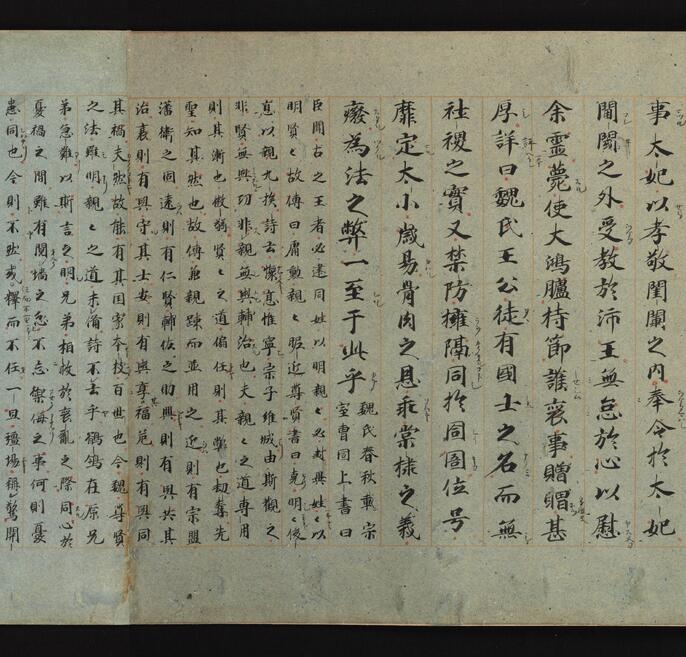 事太妃以孝敬閨闈之内奉令於太妃
閫閾之外受教於沛王無怠於心以慰
余靈薨使大鴻臚持節護喪事贈賵甚
厚詳曰魏氏王公徒有國士之名而無
社稷之實又禁防擁隔同於囹圄位号
靡定太小歲易骨肉之恩乖棠棣之義
癈為法之弊一至于此乎魏氏春秋載宗
室曹冏上書曰
臣聞古之王者必建同姓以明親〻必封異姓〻以
明賢〻故傳曰庸勲親〻昵近尊賢書曰克明〻俊
悳以親九族詩云懷悳惟寧宗子維城由斯觀之
非賢無與功非親無與輔治也夫親〻之道專用
則其漸也微弱賢〻之道偏任則其弊也劫奪先
聖知其然也故傳兼親踈而並用之近則有宗盟
藩衛之固遠則有仁賢輔佐之助興則有與共其
治衰則有與守其土安則有與享福危則有與同
其禍夫然故能有其国家本枝百世也今魏尊賢
之法雖明親〻之道未備詩不云乎鶺鴒在原兄
弟急難以斯言之明兄弟相救於喪亂之際同心於
憂禍之間雖有鬩墻之忿不忘禦侮之事何則憂
患同也今則不然或釋而不任一旦壃場稱驚關